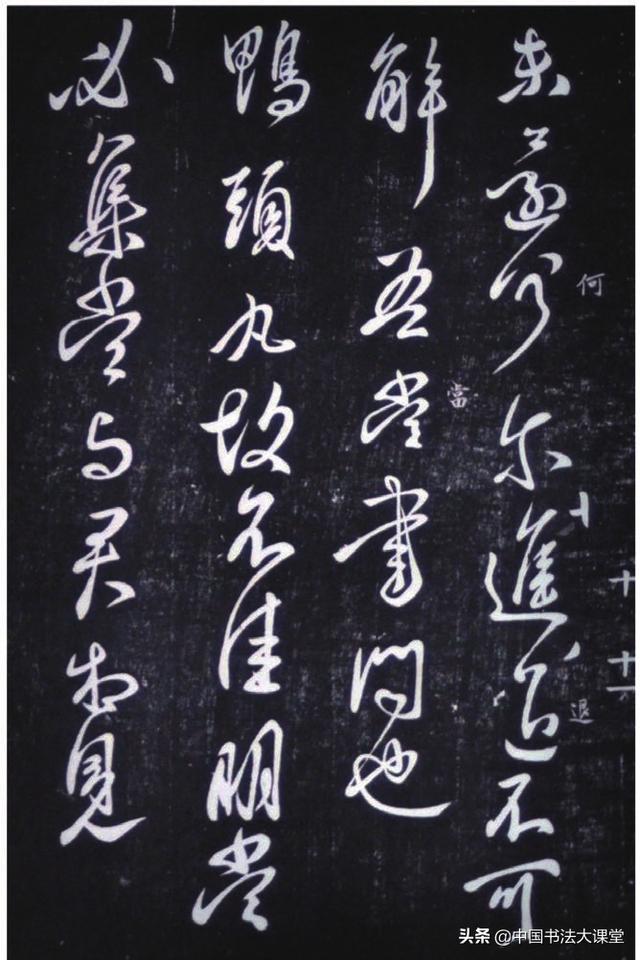 何尔進退不可
解吾當書問也
鴨頭丸故不佳明當
必集當与君相見
何
當
退
十
十一
头条 @中国书法大课堂